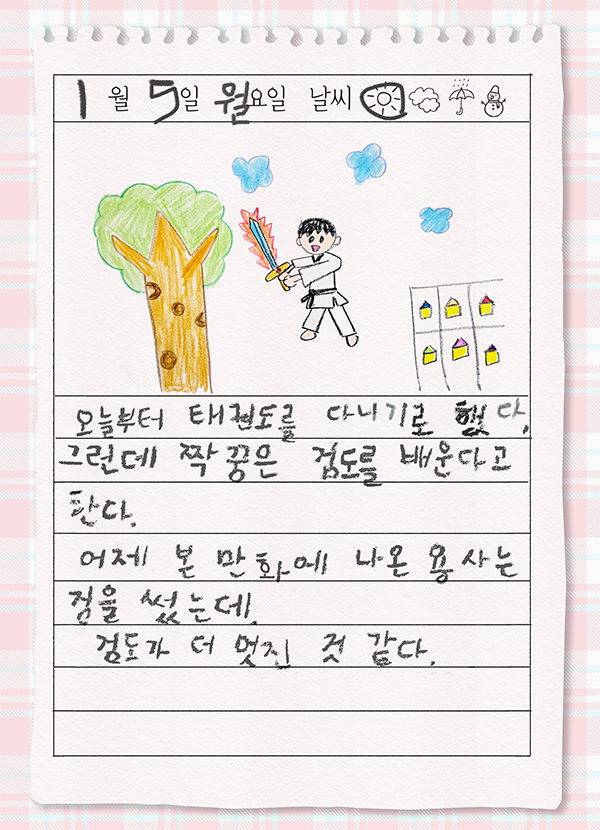 1월 5일 월요일 날씨
오늘부터 태권도를 다니기로 했다.
그런데 짝꿍은 검도를 배운다고
한다.
어제 본 만화에 나온 용사는
검을 썼는데.
검도가 더 멋진 것 같다.